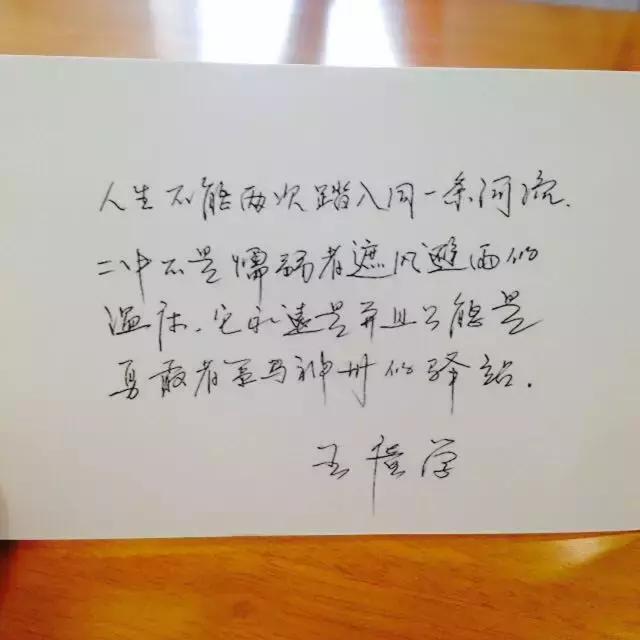 人生不能两次踏入同一条河流.
二中不是懦弱者遮风避雨的
温床.它永远是并且只能是
勇敢者策马神州的驿站.
王 学